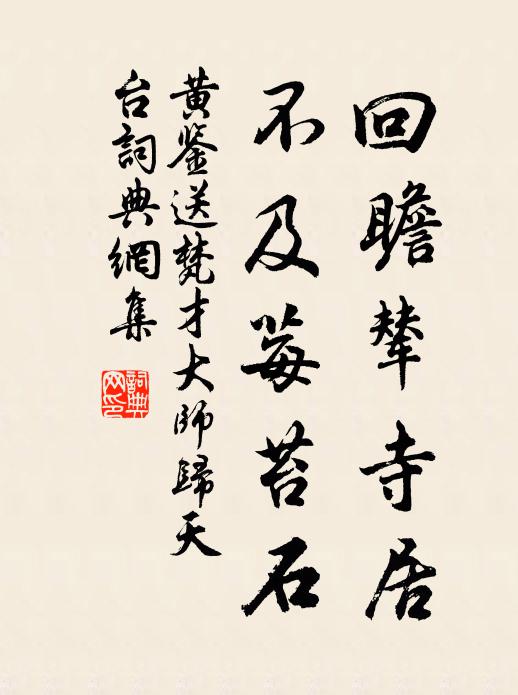 回瞻輦寺居
不及莓苔石
黄鉴送梵才大師歸天
台詞典網集
詞典網印